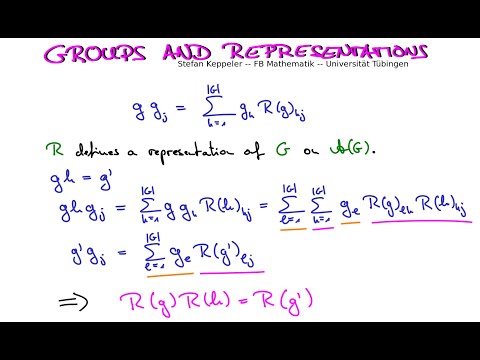 GROUPS AND REPRESENTATIONS
Stefan Keppeler -- FB Mathematik -- Universität Tübingen
g g_j = ∑_{k=1}^{|G|} g_k R(g)_{kj}
R defines a representation of G on A(G).
gh = g'
gh g_j = ∑_{k=1}^{|G|} g g_k R(h)_{kj} = ∑_{ℓ=1}^{|G|} ∑_{k=1}^{|G|} g_ℓ R(g)_{ℓk} R(h)_{kj}
g' g_j = ∑_{ℓ=1}^{|G|} g_ℓ R(g')_{ℓj}
⟹ R(g) R(h) = R(g')